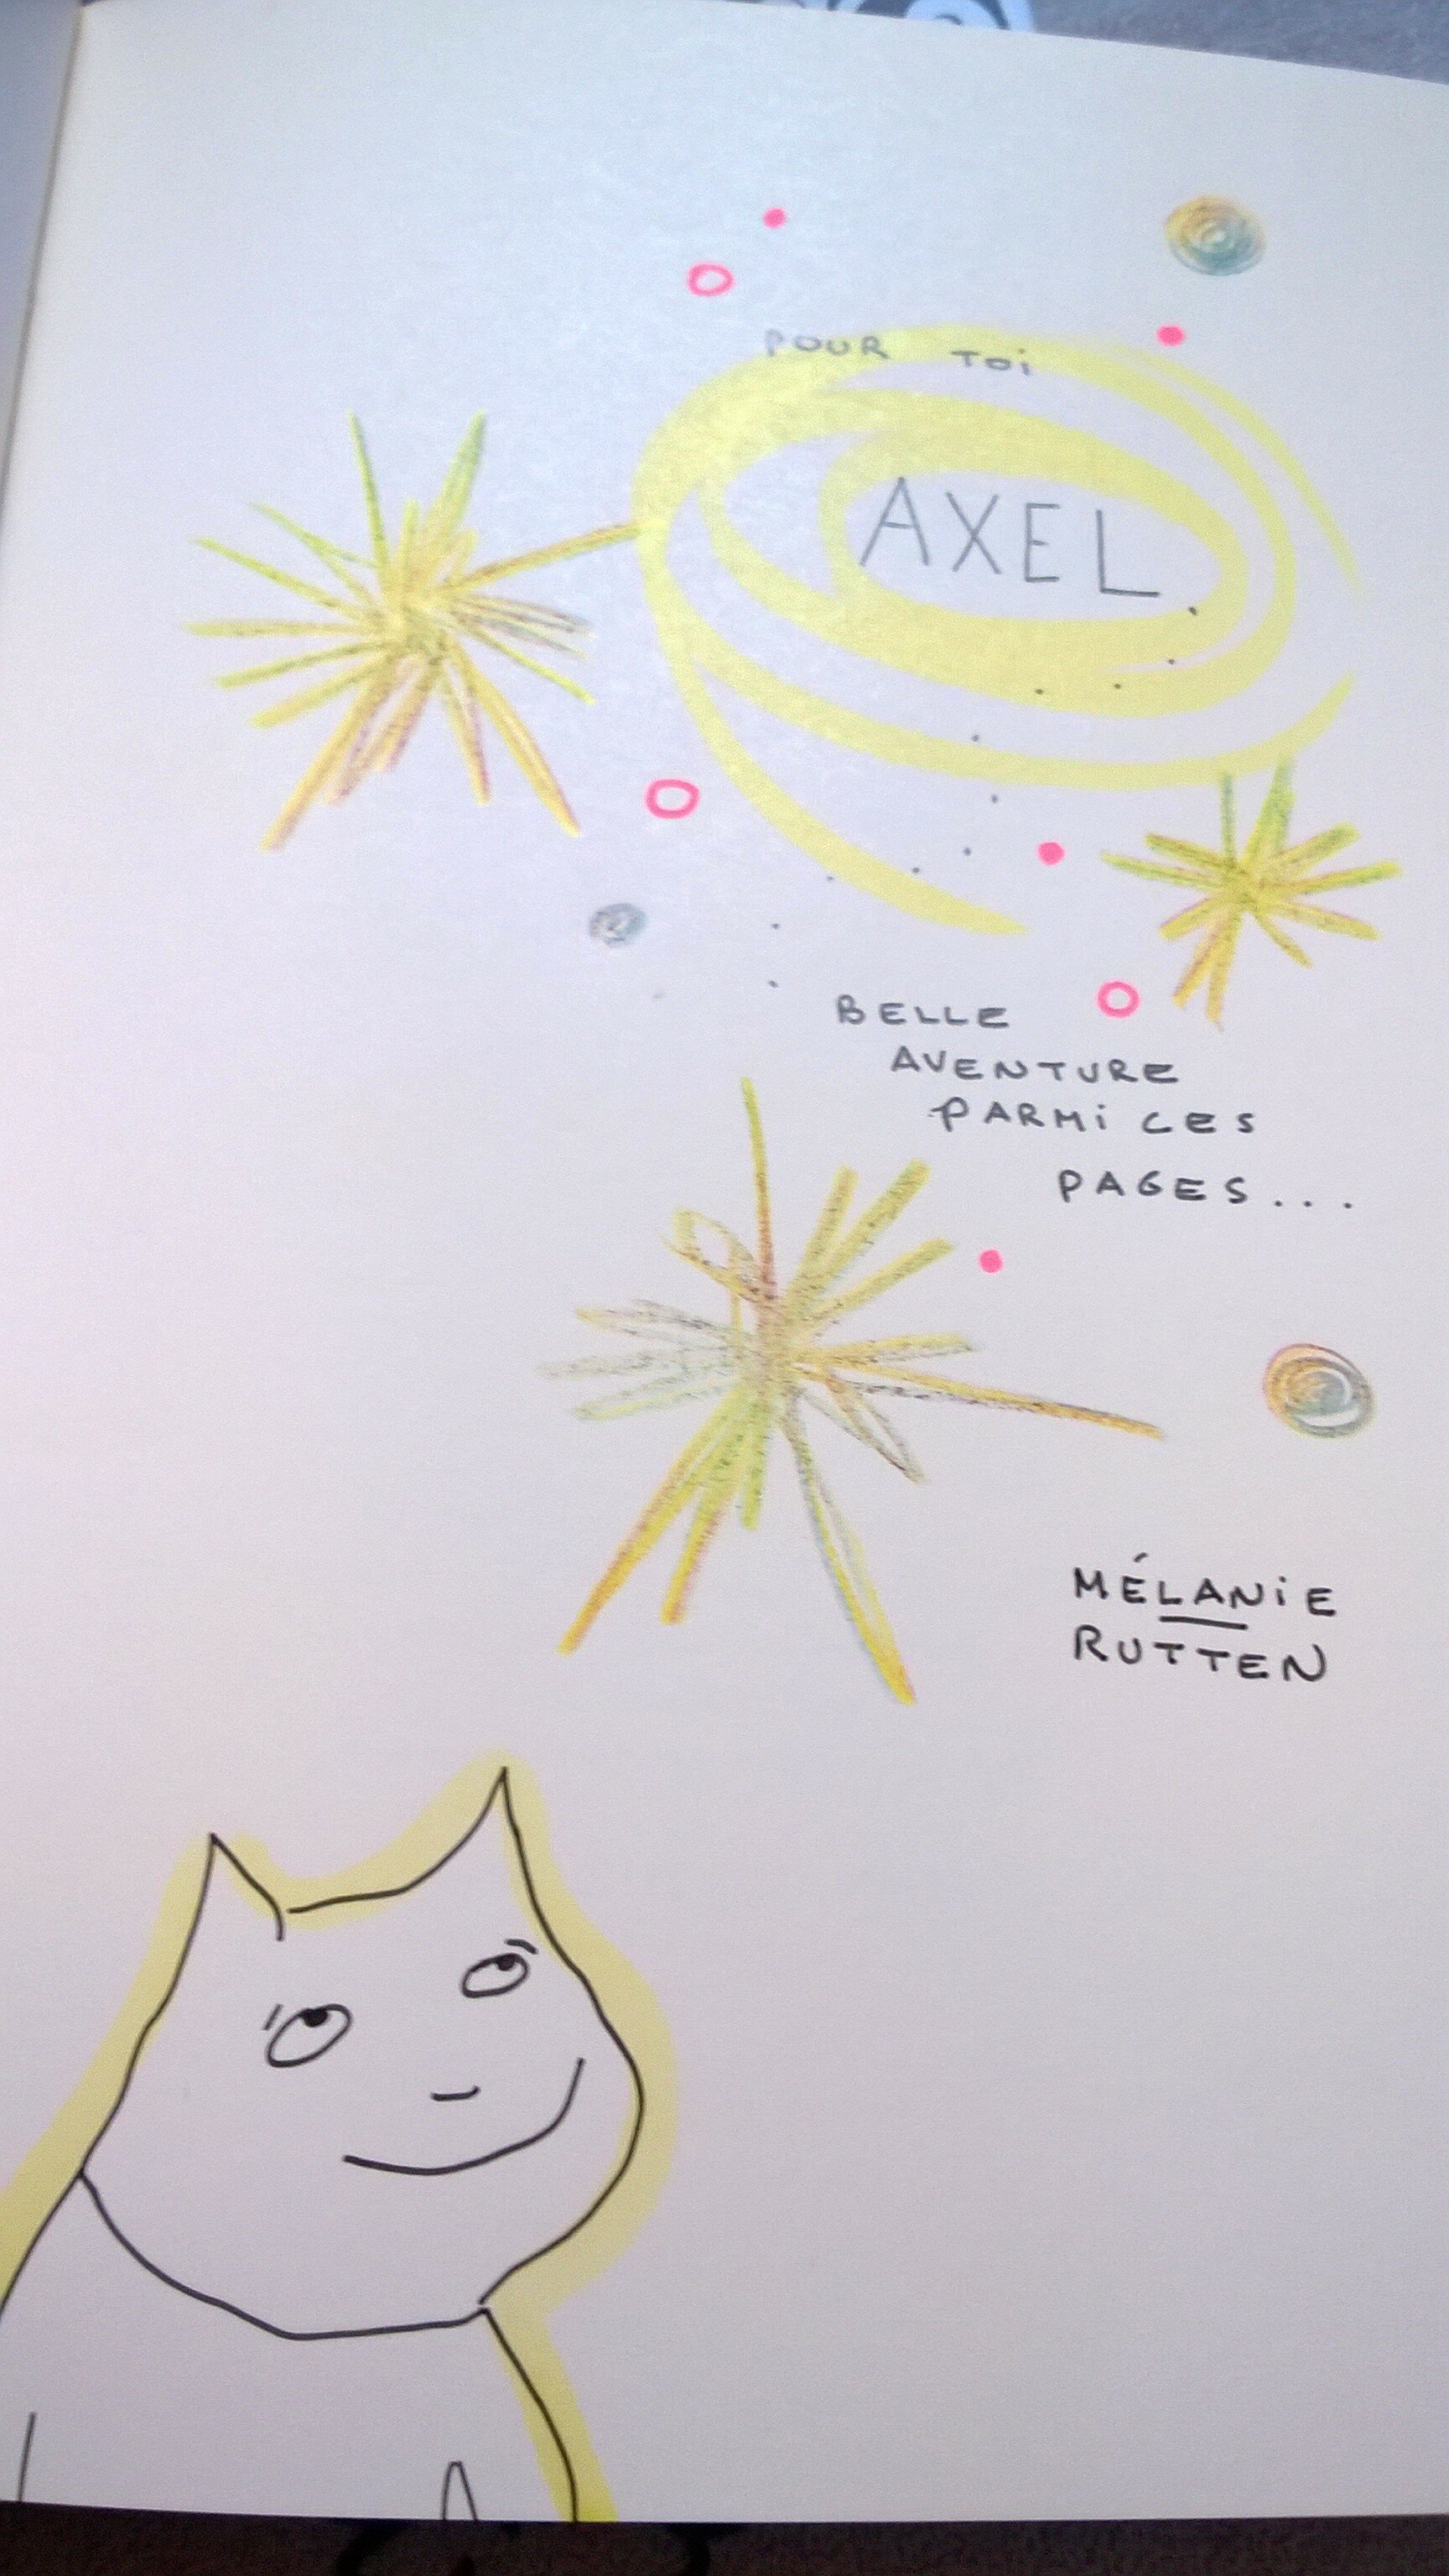 POUR TOi
AXEL
BELLE
AVENTURE
PARMi CES
PAGES...
MÉLANiE
RUTTEN